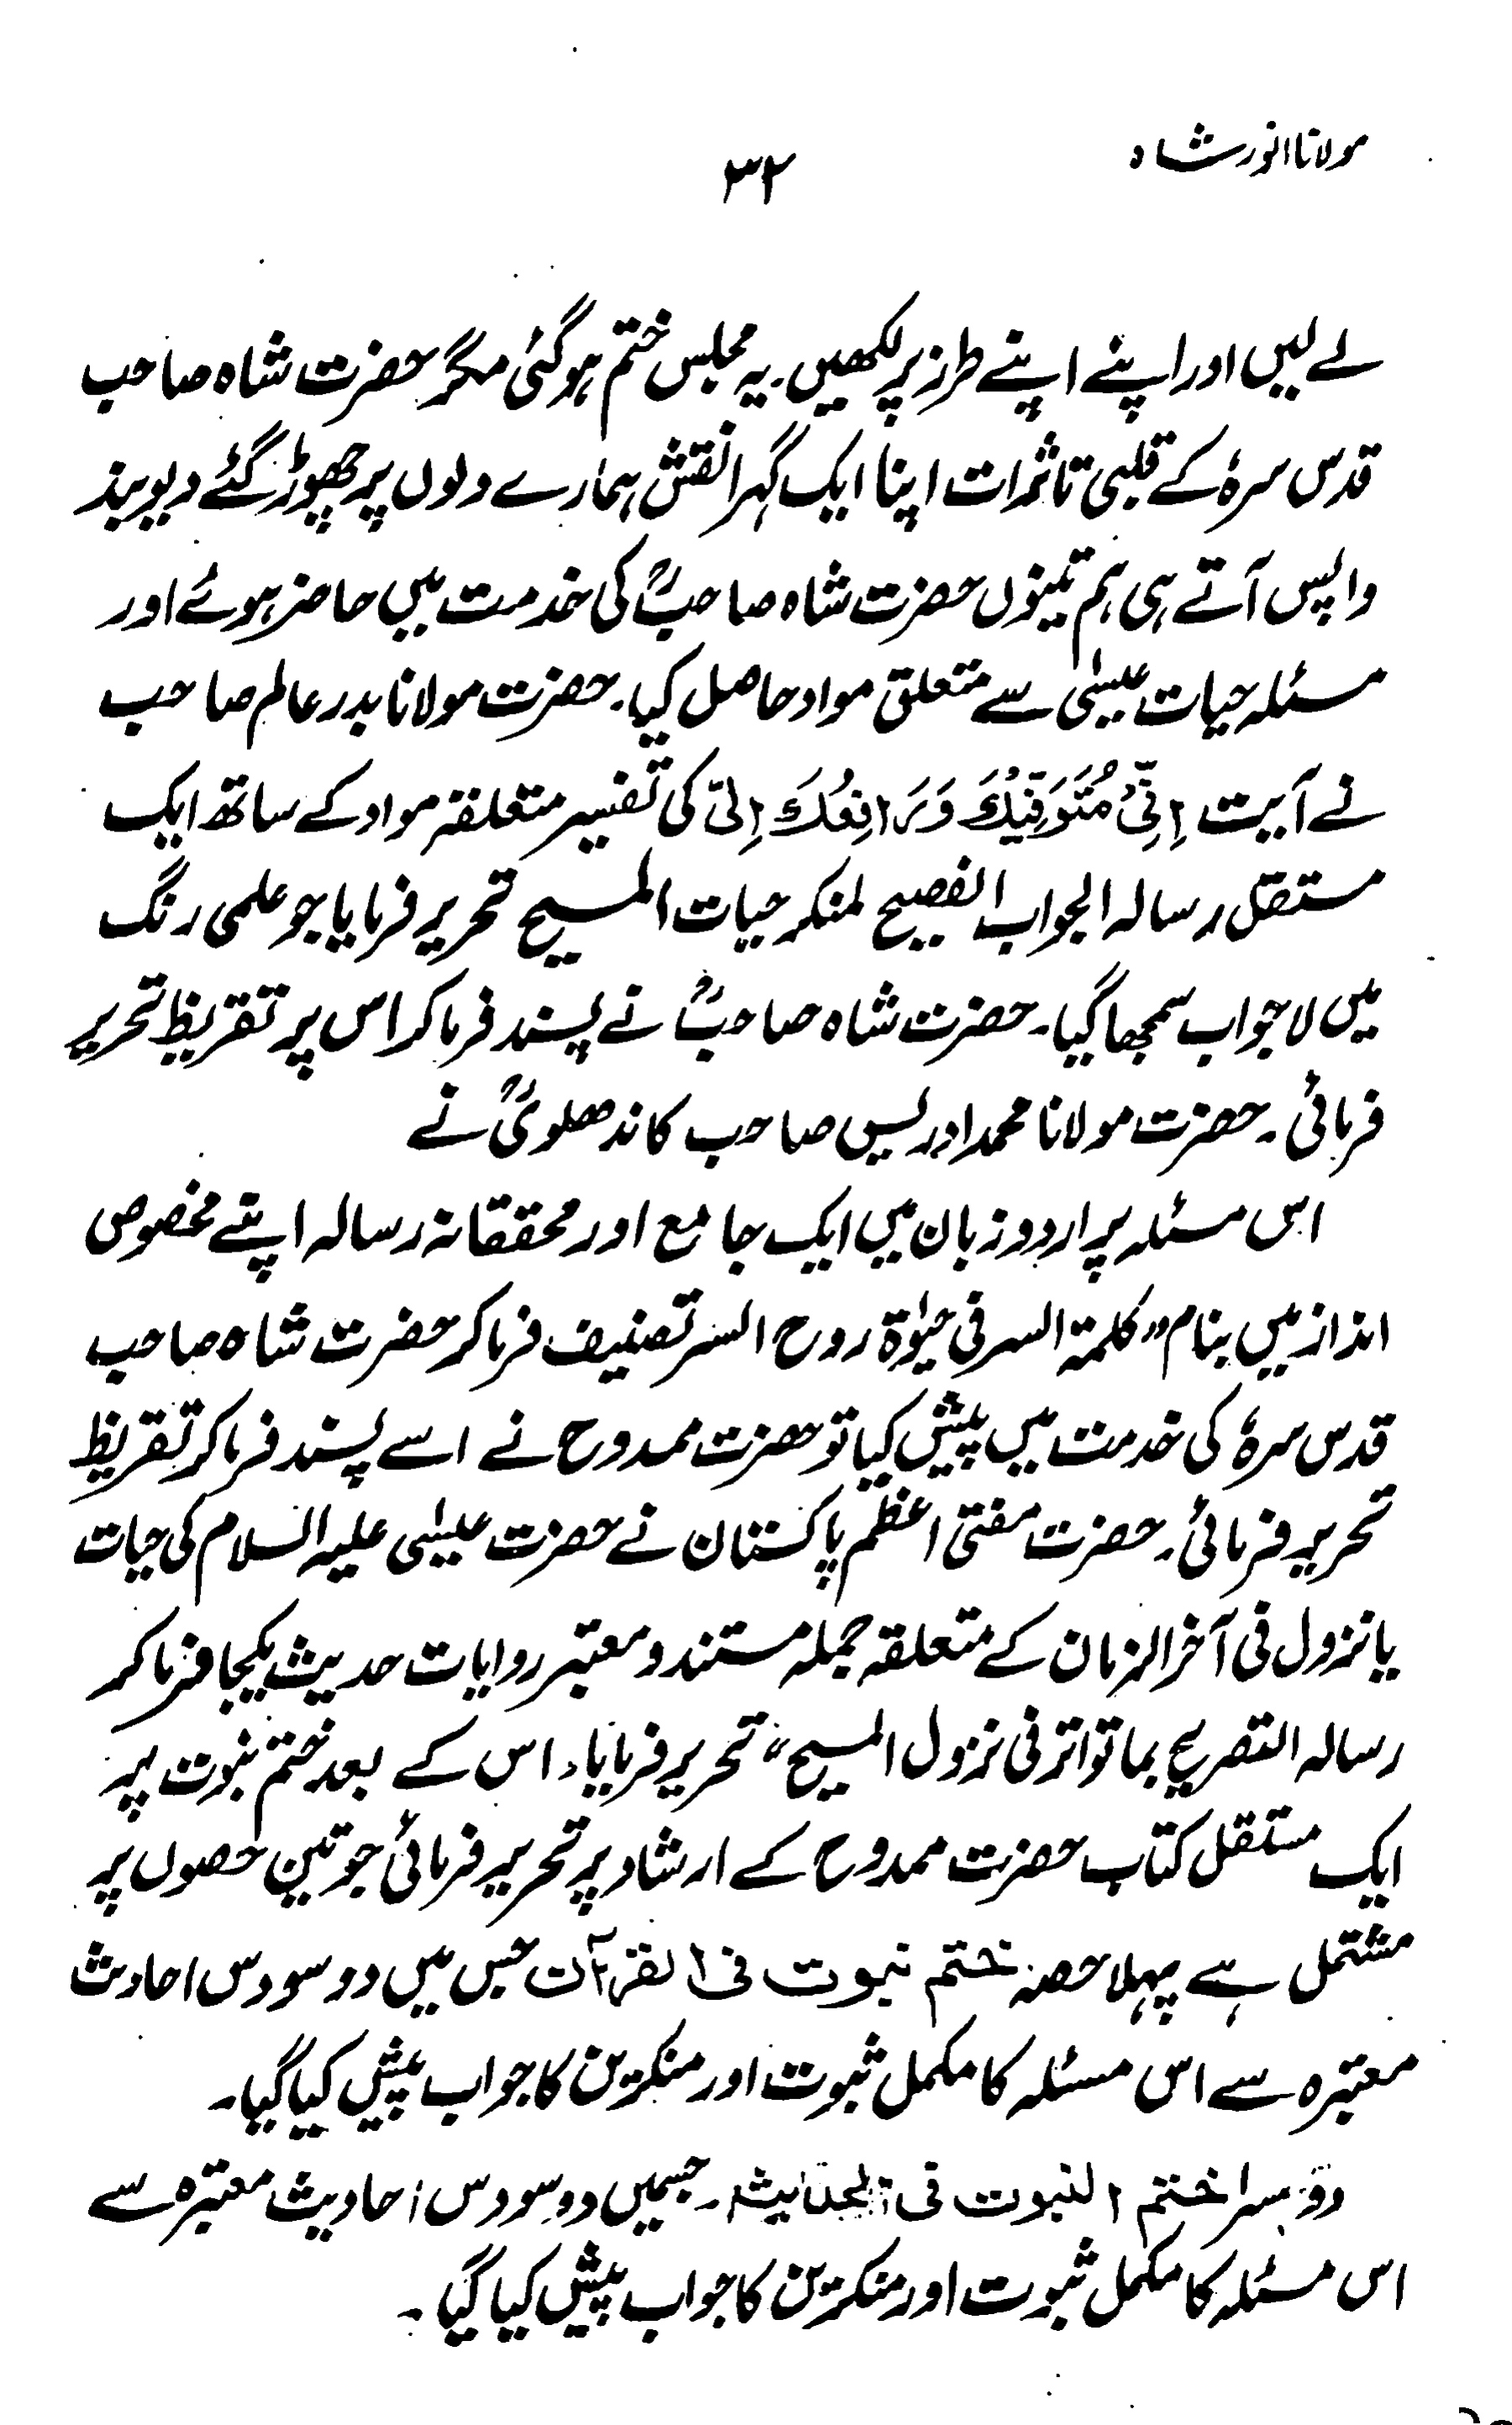 مولانا انور شاہ
۳۲
لے لیں اور اپنے اپنے طرز پر لکھیں۔ یہ مجلس ختم ہو گئی مگر حضرت شاہ صاحب
قدس سرہٗ کے قلبی تاثرات اپنا ایک گہرا نقش ہمارے دلوں پر چھوڑ گئے دیوبند
واپس آتے ہی ہم تینوں حضرت شاہ صاحبؒ کی خدمت میں حاضر ہوئے اور
مسئلہ حیات عیسیٰ سے متعلق مواد حاصل کیا۔ حضرت مولانا بدر عالم صاحب
نے آیت اِنِّیْ مُتَوَفِّیْكَ وَرَافِعُكَ اِلیَّ کی تفسیر متعلقہ مواد کے ساتھ ایک
مستقل رسالہ الجواب الفصیح لمنکر حیات المسیح تحریر فرمایا جو علمی رنگ
میں لاجواب سمجھا گیا۔ حضرت شاہ صاحبؒ نے پسند فرما کر اس پر تقریظ تحریر
فرمائی۔ حضرت مولانا محمد ادریس صاحب کاندھلویؒ نے
اس مسئلہ پر اردو زبان میں ایک جامع اور محققانہ رسالہ اپنے مخصوص
انداز میں بنام "کلمۃ السر فی حیٰوۃ روح السر تصنیف فرما کر حضرت شاہ صاحب
قدس سرہٗ کی خدمت میں پیش کیا تو حضرت ممدوح نے اسے پسند فرما کر تقریظ
تحریر فرمائی۔ حضرت مفتی اعظم پاکستان نے حضرت عیسٰی علیہ السلام کی حیات
یا نزول فی آخر الزمان کے متعلقہ جملہ مستند و معتبر روایات حدیث یکجا فرما کر
رسالہ التصریح بما تواتر فی نزول المسیح" تحریر فرمایا، اس کے بعد ختم نبوت پر
ایک مستقل کتاب حضرت ممدوح کے ارشاد پر تحریر فرمائی جو تین حصوں پر
مشتمل ہے پہلا حصہ ختم نبوت فی القرآن جس میں دو سو دس احادث
معتبرہ سے اس مسئلہ کا مکمل ثبوت اور منکرین کا جواب پیش کیا گیا۔
دوسرا ختم النبوت فی الحدیث۔ جسمیں دو سو دس احادیث معتبرہ سے
اس مسئلہ کا مکمل ثبوت اور منکرین کا جواب پیش کیا گیا۔